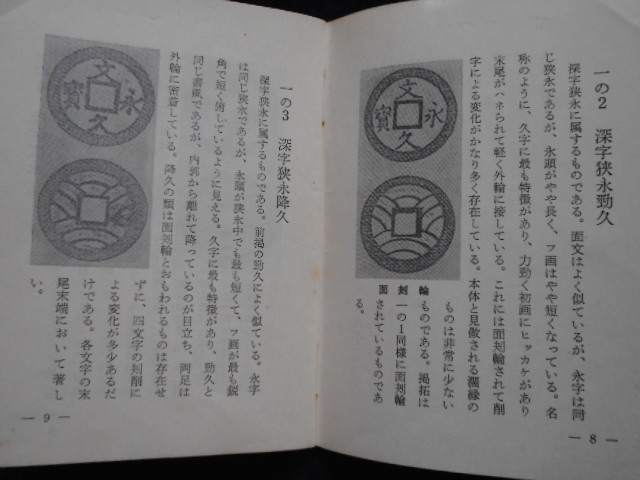 一の2　深字狭永勁久
深字狭永に属するものである。面文はよく似ているが、永字は同
じ狭永であるが、永頭がやや長く、フ画はやや短くなっている。名
称のように、久字に最も特徴があり、力勁く初画にヒッカケがあり
末尾がハネられて軽く外輪に接している。これには面刻輪されて削
字による変化がかなり多く存在している。本体と見做される濶縁の
ものは非常に少ない
ものである。掲拓は
一の1同様に面刻輪
されているものであ
る。
面刻輪
文
永
久
寳
— 8 —
一の3　深字狭永降久
深字狭永に属するものである。前掲の勁久によく似ている。永字
は同じ狭永であるが、永頭が狭永中でも最も短くて、フ画が最も鋭
角で短く俯しているように見える。久字に最も特徴があり、勁久と
同じ書風であるが、内郭から離れて降っているのが目立ち、両足は
外輪に密着している。降久の類は面刻輪とおもわれるものは存在せ
ずに、四文字の刔削に
よる変化が多少あるだ
けである。各文字の末
尾末端において著し
い。
文
永
久
寳
— 9 —